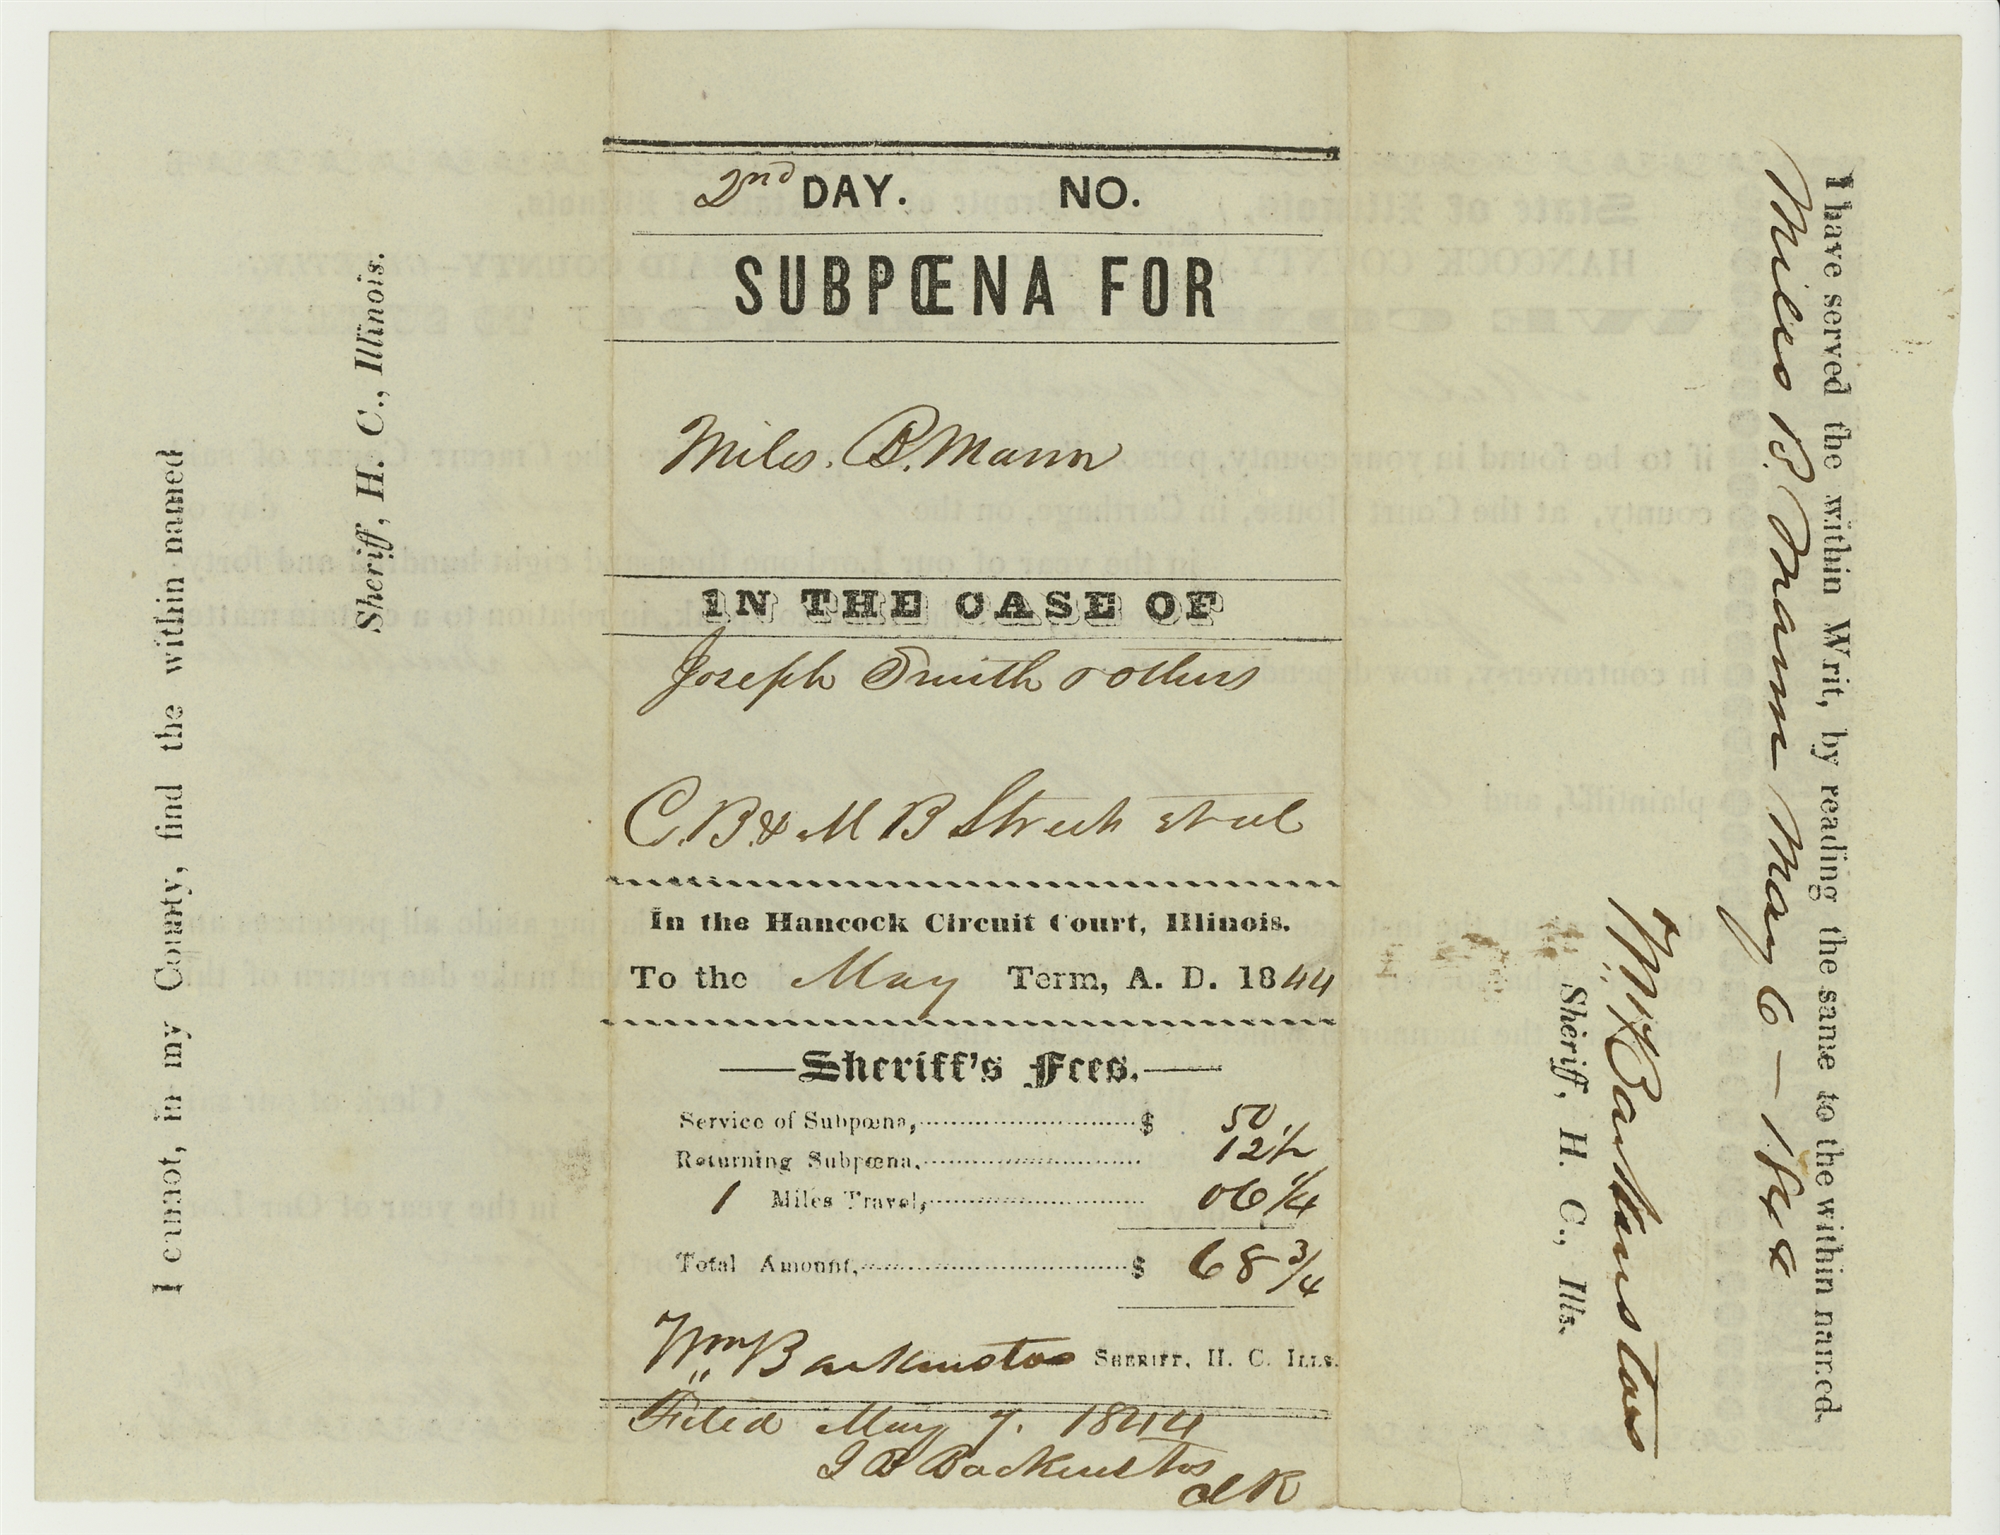 I cannot, in my County, find the within named
Sheriff, H. C., Illinois.
2nd DAY. NO.
SUBPŒNA FOR
Miles. B. Mann
IN THE CASE OF
Joseph Smith & others
C. B. & M B Street et al
In the Hancock Circuit Court, Illinois.
To the May Term, A. D. 1844
Sheriff's Fees.
Service of Subpœna, $ 50
Returning Subpœna, 12 1/2
1 Miles Travel, 06 1/4
Total Amount, $ 68 3/4
Wm Backenstos SHERIFF, H. C. ILLS.
Filed May 7. 1844
J B Backenstos
clk
I have served the within Writ, by reading the same to the within named.
Miles B. Mann May 6 - 1844
Wm Backenstos
Sheriff, H. C., Ills.